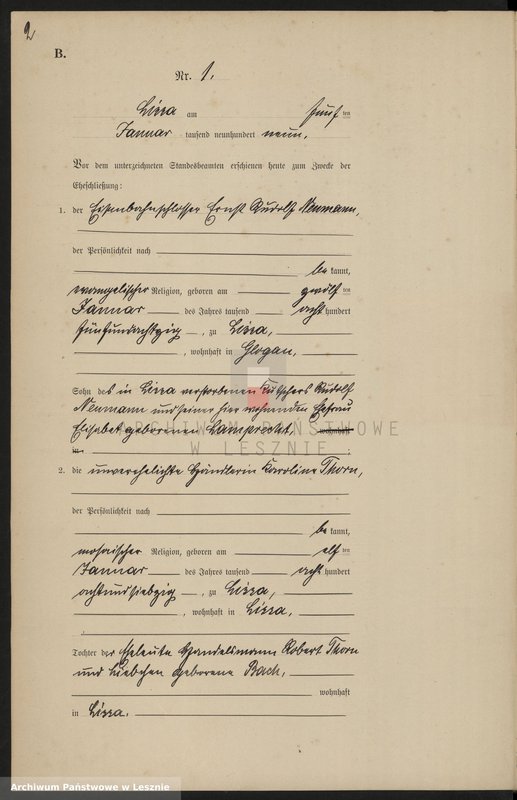 2
B.
Nr. 1.
Lissa am fünf ten
Januar tausend neunhundert neun.
Vor dem unterzeichneten Standesbeamten erschienen heute zum Zwecke der
Eheschließung:
1. der Eisenbahnschlosser Ernst Rudolf Neumann,
der Persönlichkeit nach
be kannt,
evangelischer Religion, geboren am zwölf ten
Januar des Jahres tausend acht hundert
fünfundachtzig, zu Lissa,
, wohnhaft in Glogau,
Sohn des in Lissa verstorbenen Kutschers Rudolf
Neumann und seiner hier wohnenden Ehefrau
Elisabet geborenen Lamprecht, wohnhaft
ARCHIWUM PAŃSTWOWE
W LESZNIE
in ;
2. die unverehelichte Händlerin Karoline Thorn,
der Persönlichkeit nach
be kannt,
mosaischer Religion, geboren am elf ten
Januar des Jahres tausend acht hundert
achtundsiebzig, zu Lissa,
, wohnhaft in Lissa,
Tochter der Eheleute Handelsmann Robert Thorn
und Liebchen geborene Bach,
wohnhaft
in Lissa.
Archiwum Państwowe w Lesznie